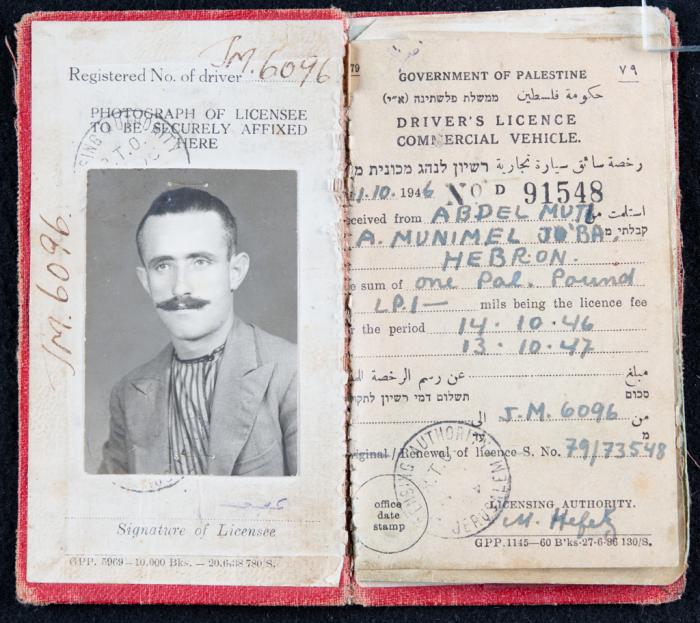 Registered No. of driver J.M. 6096
PHOTOGRAPH OF LICENSEE
TO BE SECURELY AFFIXED
HERE
J.M. 6096
Signature of Licensee
GPP. 5969—10,000 Bks. — 20.6.38 780/S.
79
٧٩
GOVERNMENT OF PALESTINE
حكومة فلسطين ממשלת פלשתינה (א״י)
DRIVER'S LICENCE
COMMERCIAL VEHICLE.
رخصة سائق سيارة تجارية רשיון לנהג מכונית
1.10.1946 No D 91548
eceived from ABDEL MUTI استلمت من
קבלתי
A. MUNIMEL JO'BA,
HEBRON.
e sum of one Pal. Pound
LP.1— mils being the licence fee
r the period 14.10.46
13.10.47
مبلغ عن رسم الرخصة
סכום תשלום דמי רשיון
من J.M. 6096 الى
מ
original / Renewal of licence S. No. 79/73548
LICENSING AUTHORITY
R.T.O.
JERUSALEM
office
date
stamp
LICENSING AUTHORITY.
M. Hefetz
GPP.1145—60 B'ks-27-6-96 130/S.